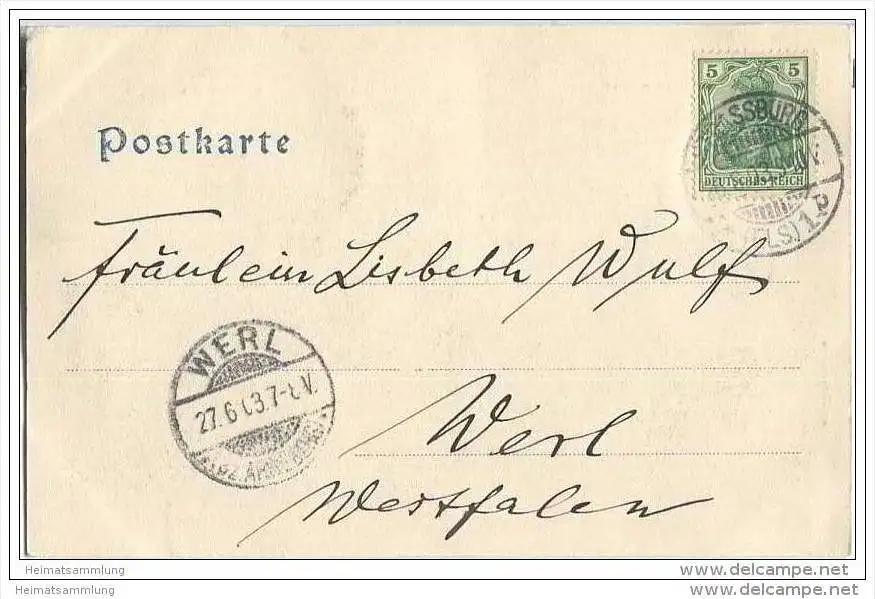 5 5
DEUTSCHES REICH
Postkarte
Fräulein Lisbeth Wulf
WERL
27.6.03.7-8V.
Werl
Westfalen
Heimatsammlung
www.delcampe.net
Heimatsammlung
www.delcampe.net